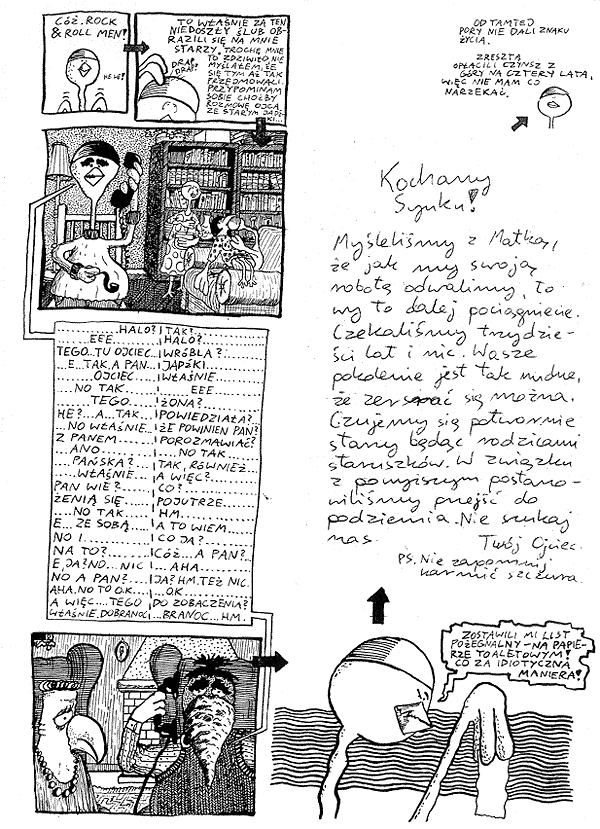 CÓŻ. ROCK
& ROLL MEN!
HE HE!
TO WŁAŚNIE ZA TEN
NIEDOSZŁY ŚLUB OB-
RAZILI SIĘ NA MNIE
STARZY. TROCHĘ MNIE
TO ZDZIWIŁO, NIE
MYŚLAŁEM, ŻE
SIĘ TYM AŻ TAK
PRZEJMOWALI.
PRZYPOMINAM
SOBIE CHOĆBY
ROZMOWĘ OJCA
ZE STARYM JAPŚ-
KI...
DRAP!
DRAP!
..........HALO?
TAK!
......EEE......
HALO?
TEGO..TU OJCIEC...
WRÓBLA?
...E...TAK, A PAN...
JAPŚKI
......OJCIEC......
WŁAŚNIE
...NO TAK......
EEE
......TEGO......
ŻONA?
HE?...A...TAK...
POWIEDZIAŁA?
...NO WŁAŚNIE..
ŻE POWINIEN PAN?
Z PANEM......
POROZMAWIAĆ?
......ANO......
...NO TAK
...PAŃSKA?...
TAK, RÓWNIEŻ...
......WŁAŚNIE...
A WIĘC?...
PAN WIE?...
CO?
ŻENIĄ SIĘ...
POJUTRZE.
...NO TAK...
HM.
E...ZE SOBĄ...
A TO WIEM.
NO I......
CO JA?
NA TO?...
CÓŻ...A PAN?
E, JA? NO...NIC
...AHA
NO A PAN?...
JA? HM. TEŻ NIC.
AHA. NO TO O.K...
...OK
A WIĘC....TEGO
DO ZOBACZENIA?
WŁAŚNIE. DOBRANOC
...BRANOC...HM.
OD TAMTEJ
PORY NIE DALI ZNAKU
ŻYCIA.
ZRESZTĄ
OPŁACILI CZYNSZ Z
GÓRY NA CZTERY LATA,
WIĘC NIE MAM CO
NARZEKAĆ.
Kochany
Synku!
Myśleliśmy z Matką,
że jak my swoją
robotę odwalimy, to
wy to dalej pociągniecie.
Czekaliśmy trzydzie-
ści lat i nic. Wasze
pokolenie jest tak nudne,
że zerzygać się można.
Czujemy się potwornie
starzy będąc rodzicami
staruszków. W związku
z powyższym postano-
wiliśmy przejść do
podziemia. Nie szukaj
nas.
Twój Ojciec.
PS. Nie zapomnij
karmić szczura.
ZOSTAWILI MI LIST
POŻEGNALNY - NA PAPIE-
RZE TOALETOWYM!
CO ZA IDIOTYCZNA
MANIERA!